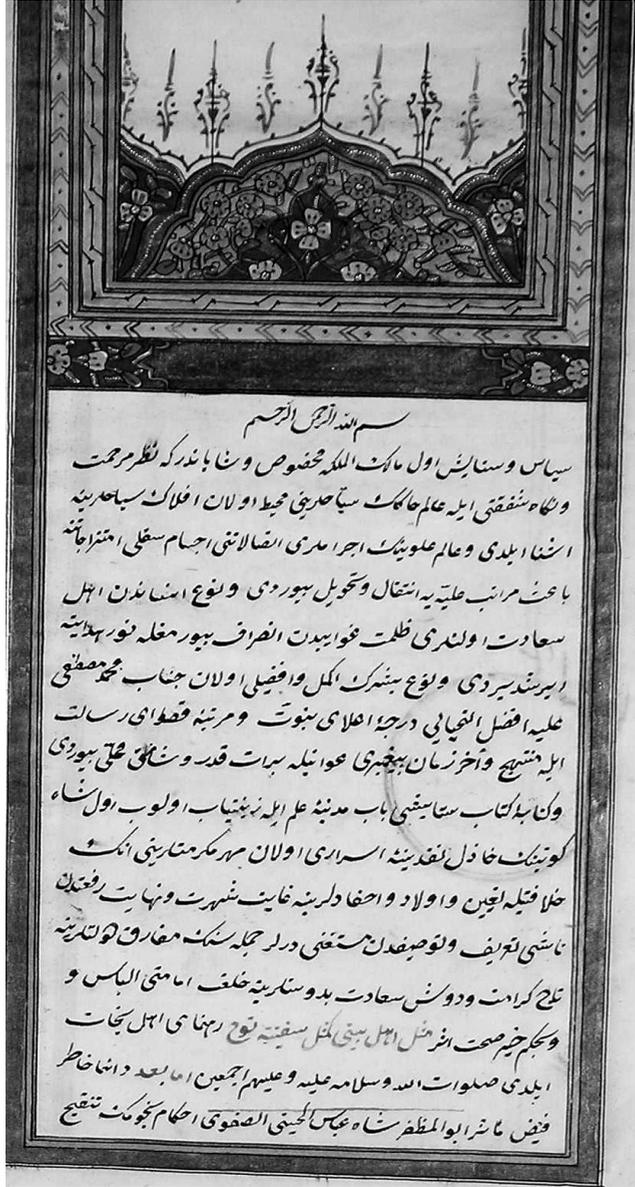 بسم الله الرحمن الرحيم
سپاس وستایش اول مالك الملكه مخصوص وشایاندركه نظر مرحمت
ونكاه شفقتى ایله عالم خاكك سیاحلرینى محیط اولان افلاك سباحلرینه
اشنا ایلدى وعالم علوینك اجراملرى اتصالاتنى اجسام سفلى امتزاجاتنه
باعث مراتب علیه یه انتقال وتحویل بیوردى ونوع انساندن اهل
سعادت اولنلرى ظلمت غوایتدن انصراف بیور مغله نور هدایته
ایرشدیردى ونوع بشرك اكمل وافضلى اولان جناب محمد مصطفى
علیه افضل التحیاتى درجهٔ اعلاى نبوت ومرتبهٔ قصواى رسالت
ایله منتهج وآخر زمان پیغمبرى عوانیله برات قدر وشانن محلى بیوردى
وكتابهٔ كتاب ستایشى باب مدینهٔ علم ایله زینتیاب اولوب اول شاه
كونینك خازل نقدینهٔ اسرارى اولان مهر مكرمتلرینى انك
خلافتیله تعیین واولاد واحفادلرینه غایت شهرت ونهایت رفعتدن
ناشى تعریف وتوصیفدن مستغنى درلر جمله سنك مفارق دولتلرینه
تاج كرامت ودوش سعادت بدوستلرینه خلعت امامتى الباس و
وبحكم خبر صحت اثر مثل اهل بیتى كمثل سفینة نوح رهنماى اهل نجات
ایلدى صلوات الله وسلامه علیه وعلیهم اجمعین اما بعد دائما خاطر
فیض مآثر ابو المظفر شاه عباس الحسینى الصفوى احكام نجومك تنقیح